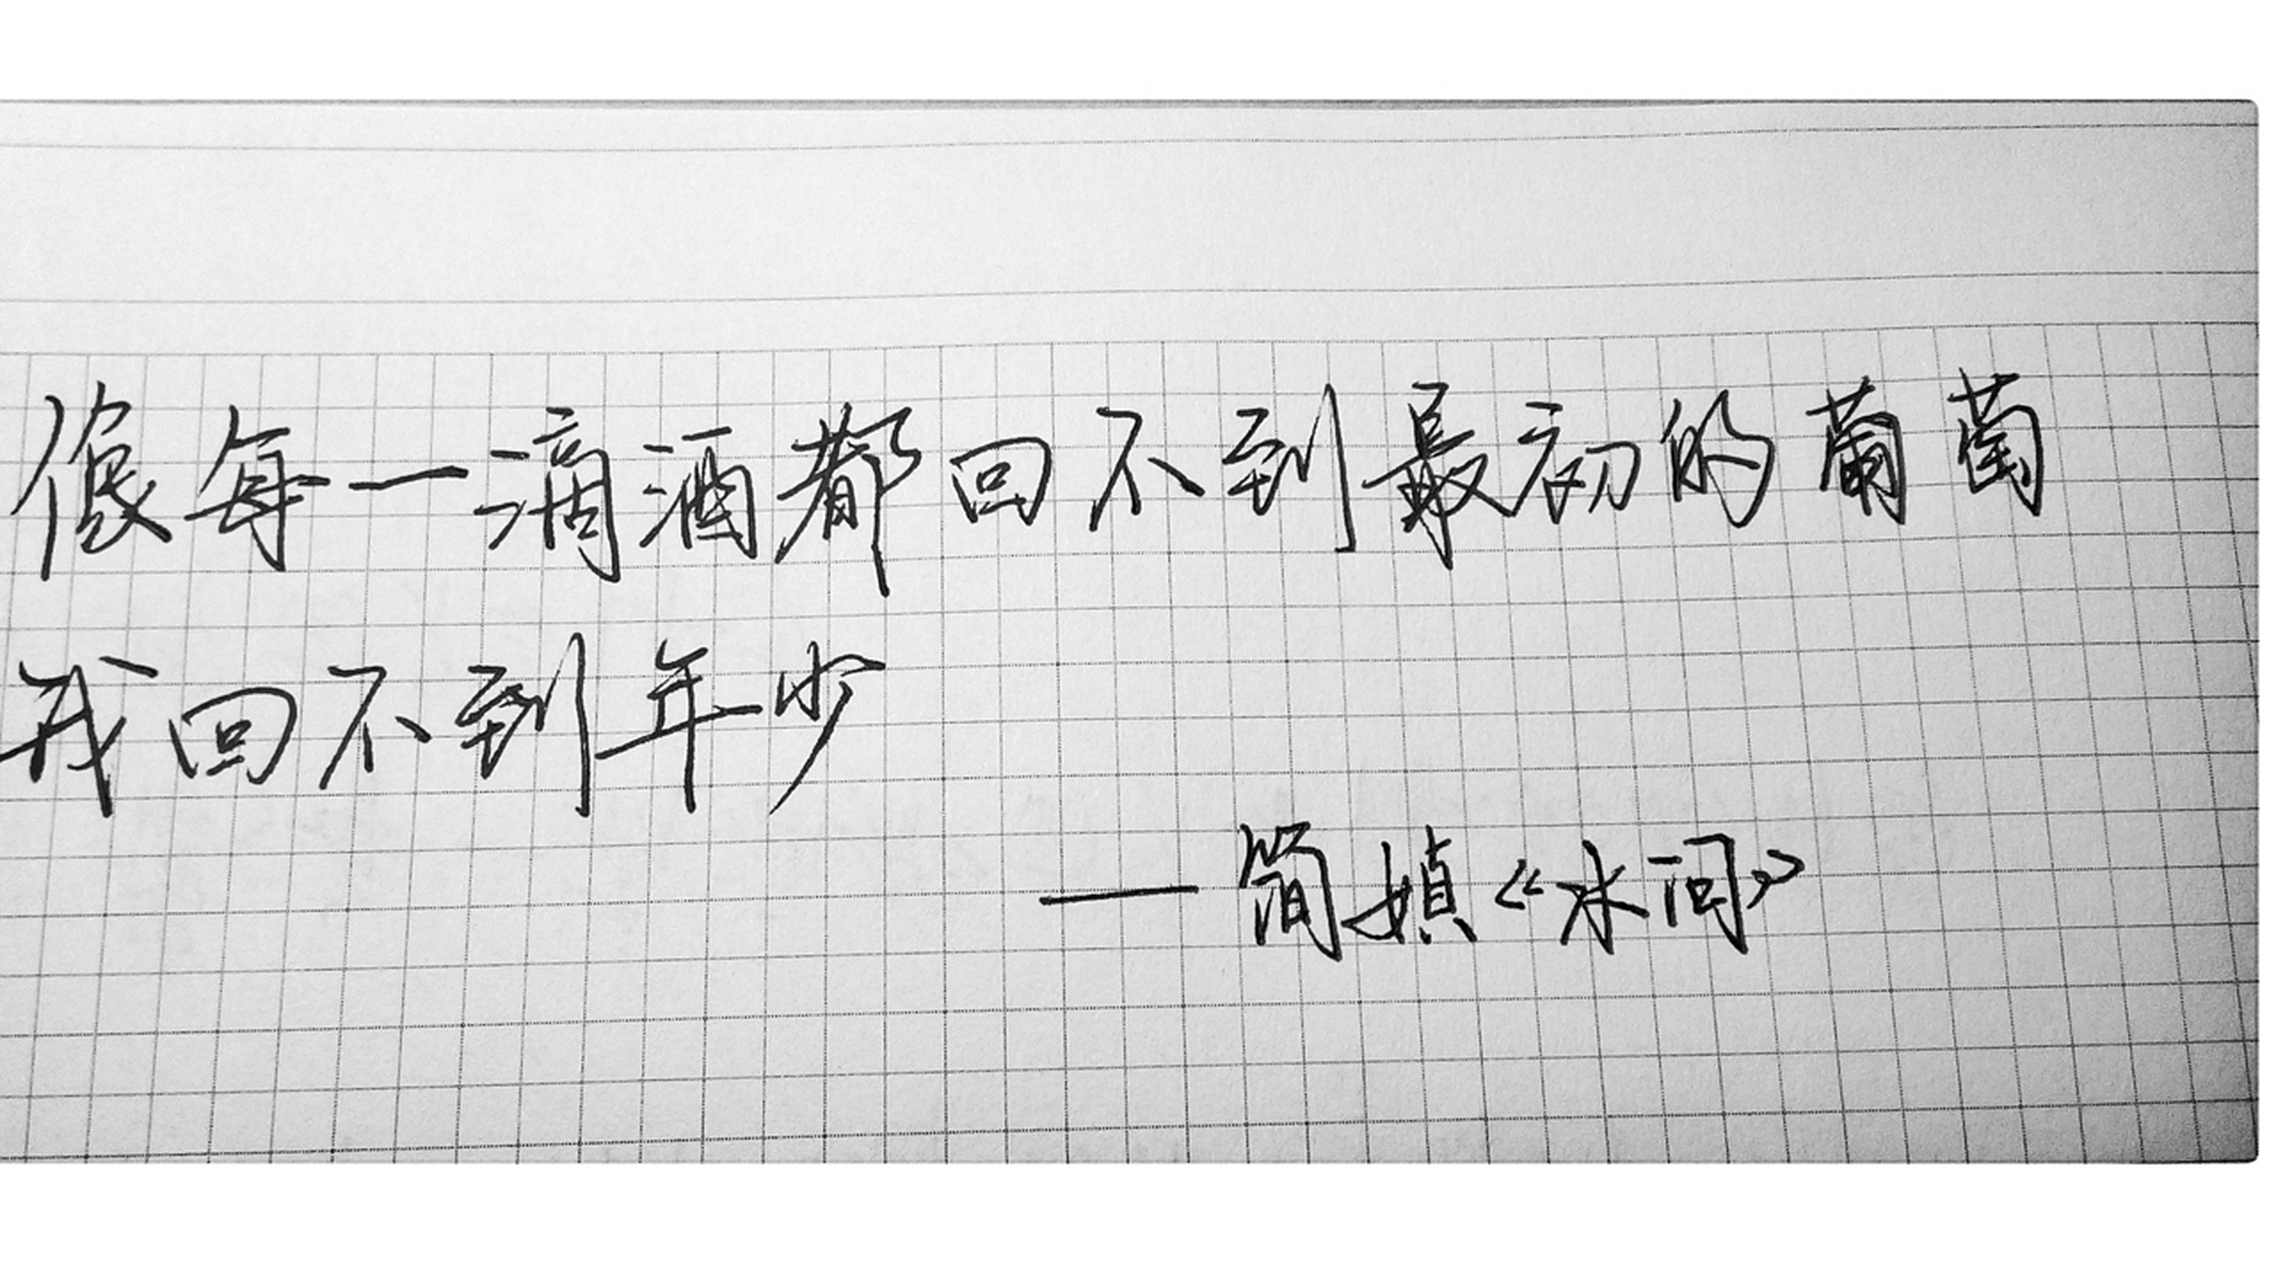 像每一滴酒都回不到最初的葡萄
我回不到年少
—简媜《水问》